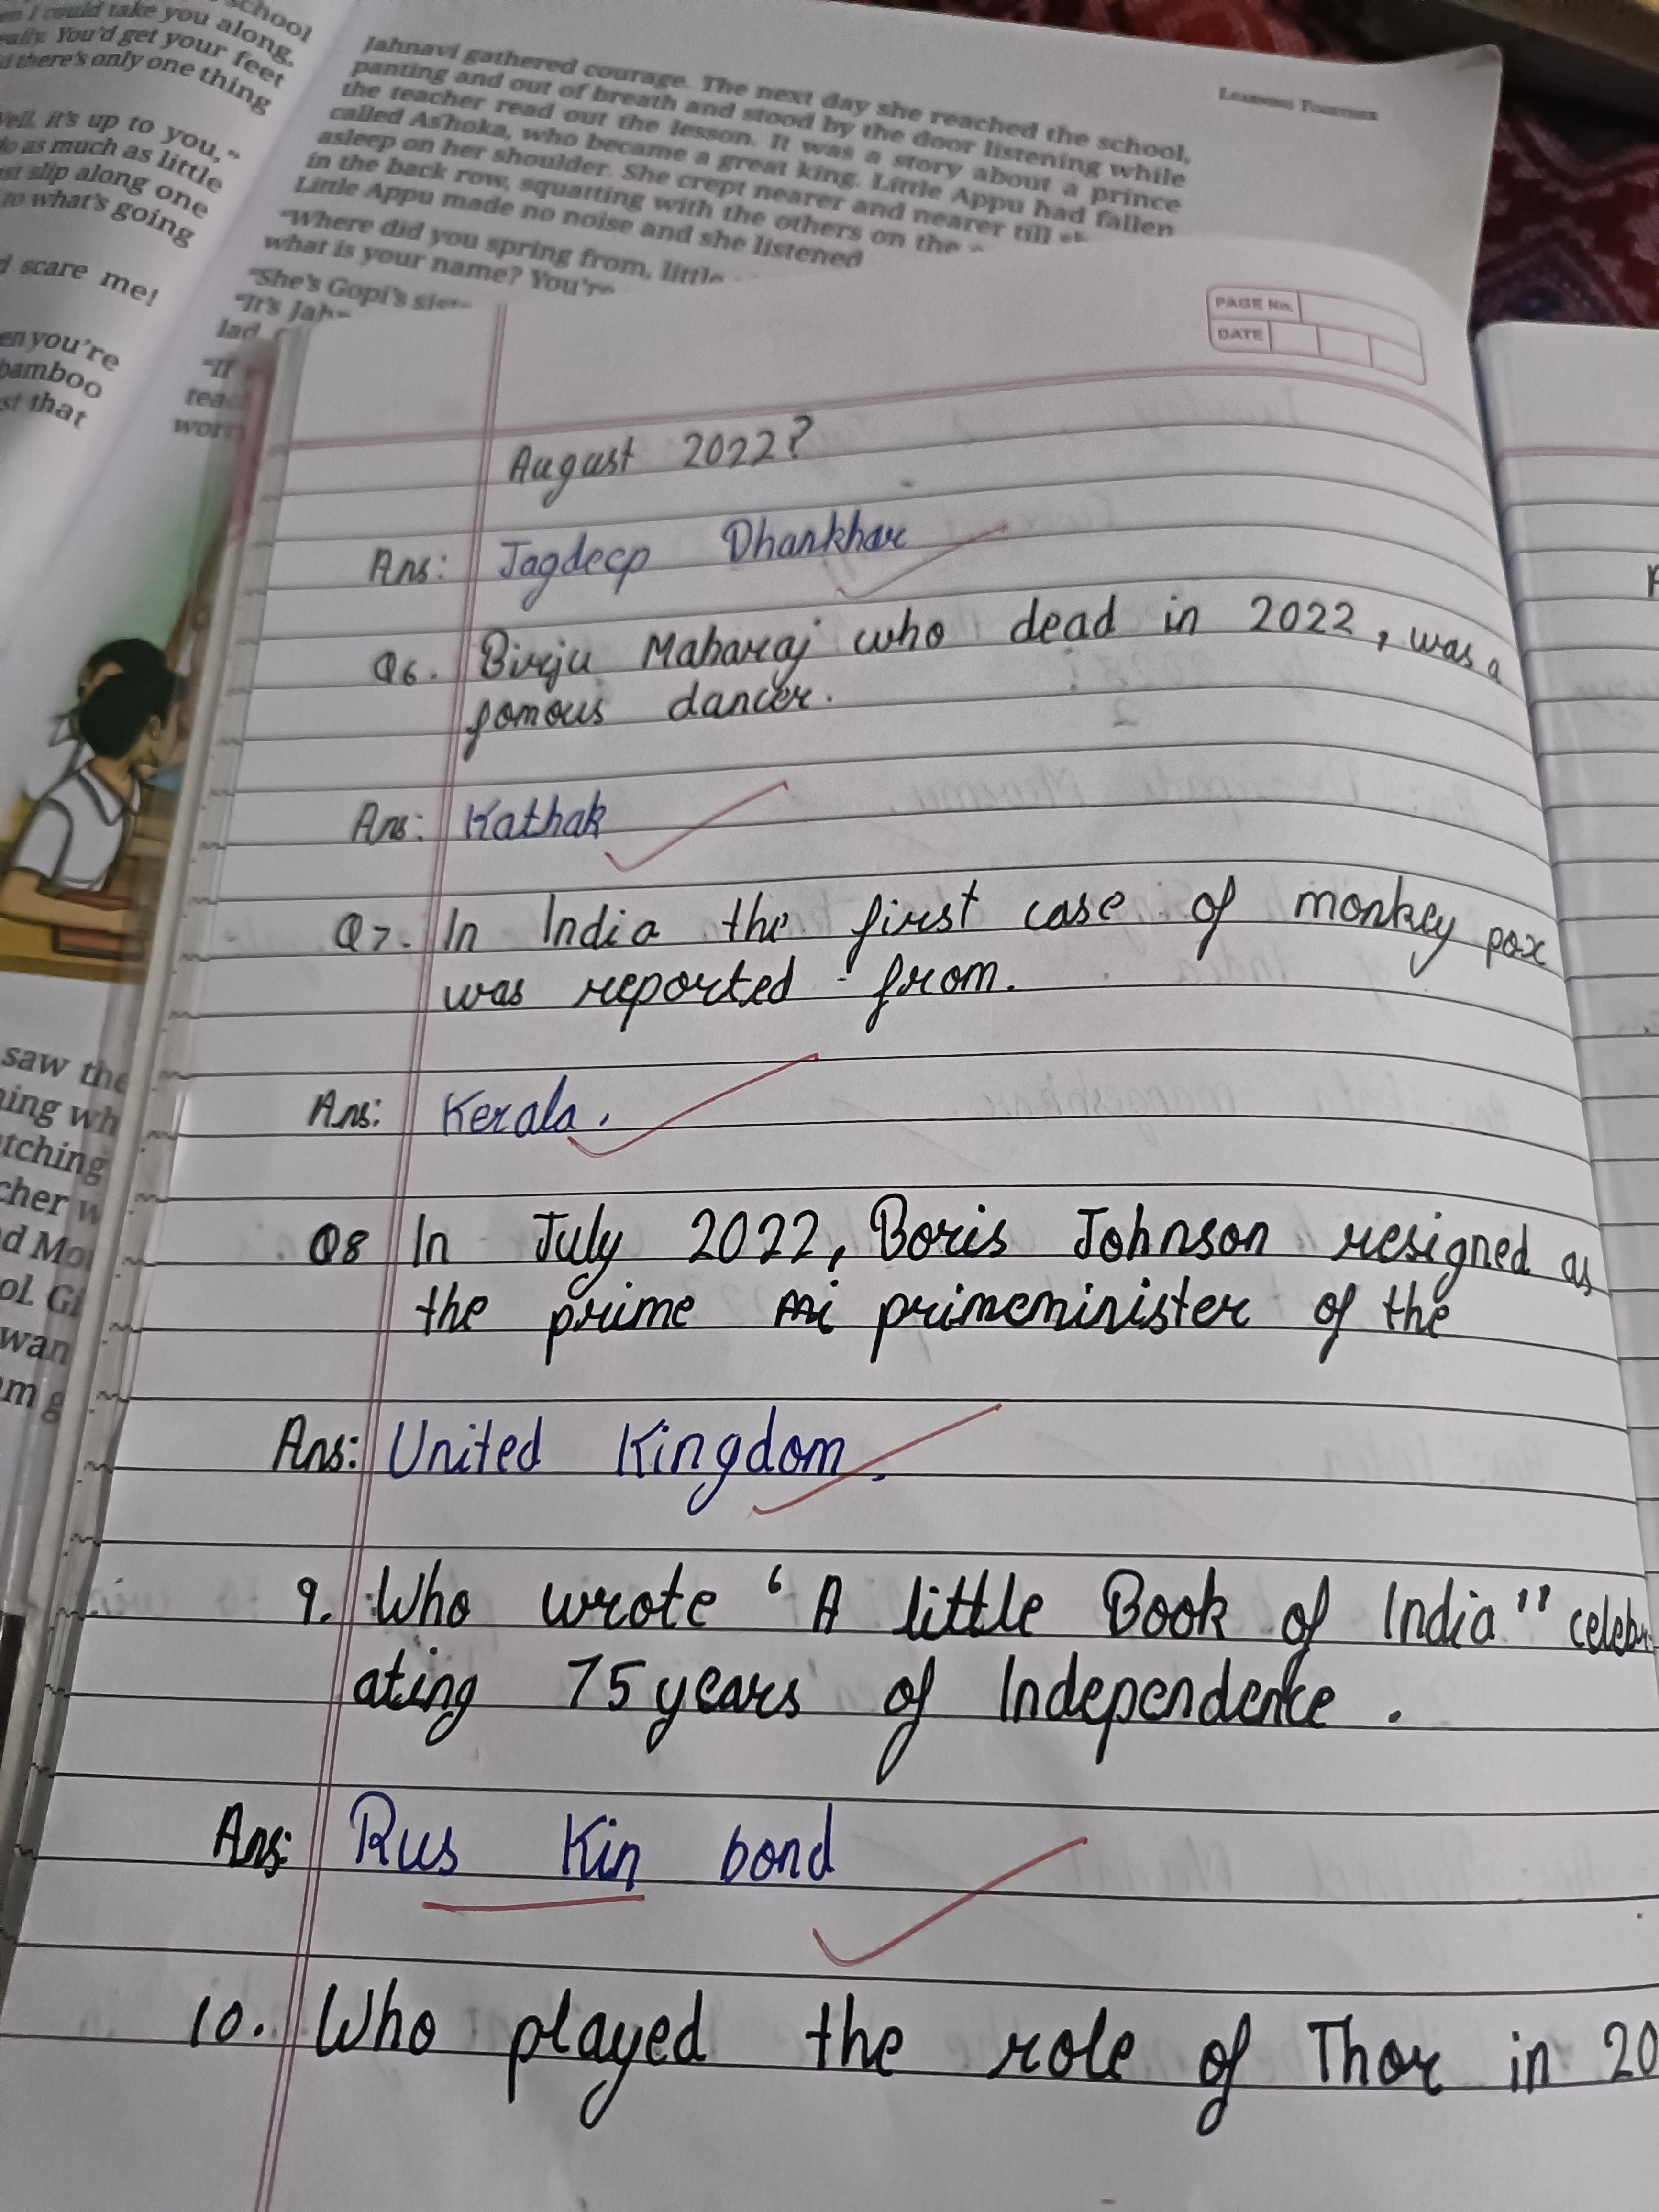 school
en I could take you along,
eally. You'd get your feet
d there's only one thing
Well, it's up to you,"
do as much as little
ust slip along one
to what's going
d scare me!
en you're
bamboo
st that
saw the
ning wh
tching
cher w
d Mo
ol. Gi
wan
m g
LEARNING TOGETHER
Jahnavi gathered courage. The next day she reached the school,
panting and out of breath and stood by the door listening while
the teacher read out the lesson. It was a story about a prince
called Ashoka, who became a great king. Little Appu had fallen
asleep on her shoulder. She crept nearer and nearer till
in the back row, squatting with the others on the
Little Appu made no noise and she listened
"Where did you spring from, little
what is your name? You're
"She's Gopi's sist
"It's Jah
lad
"If
teac
worr
PAGE No.
DATE
August 2022?
Ans: Jagdeep Dhankhar
Q6. Birju Maharaj who dead in 2022, was a
famous dancer.
Ans: Kathak
Q7. In India the first case of monkey pox
was reported from.
Ans: Kerala.
Q8 In July 2022, Boris Johnson resigned as
the prime mi primeminister of the
Ans: United Kingdom.
9. Who wrote 'A little Book of India" celebr
ating 75 years of Independence.
Ans: Rus Kin bond
10. Who played the role of Thor in 20